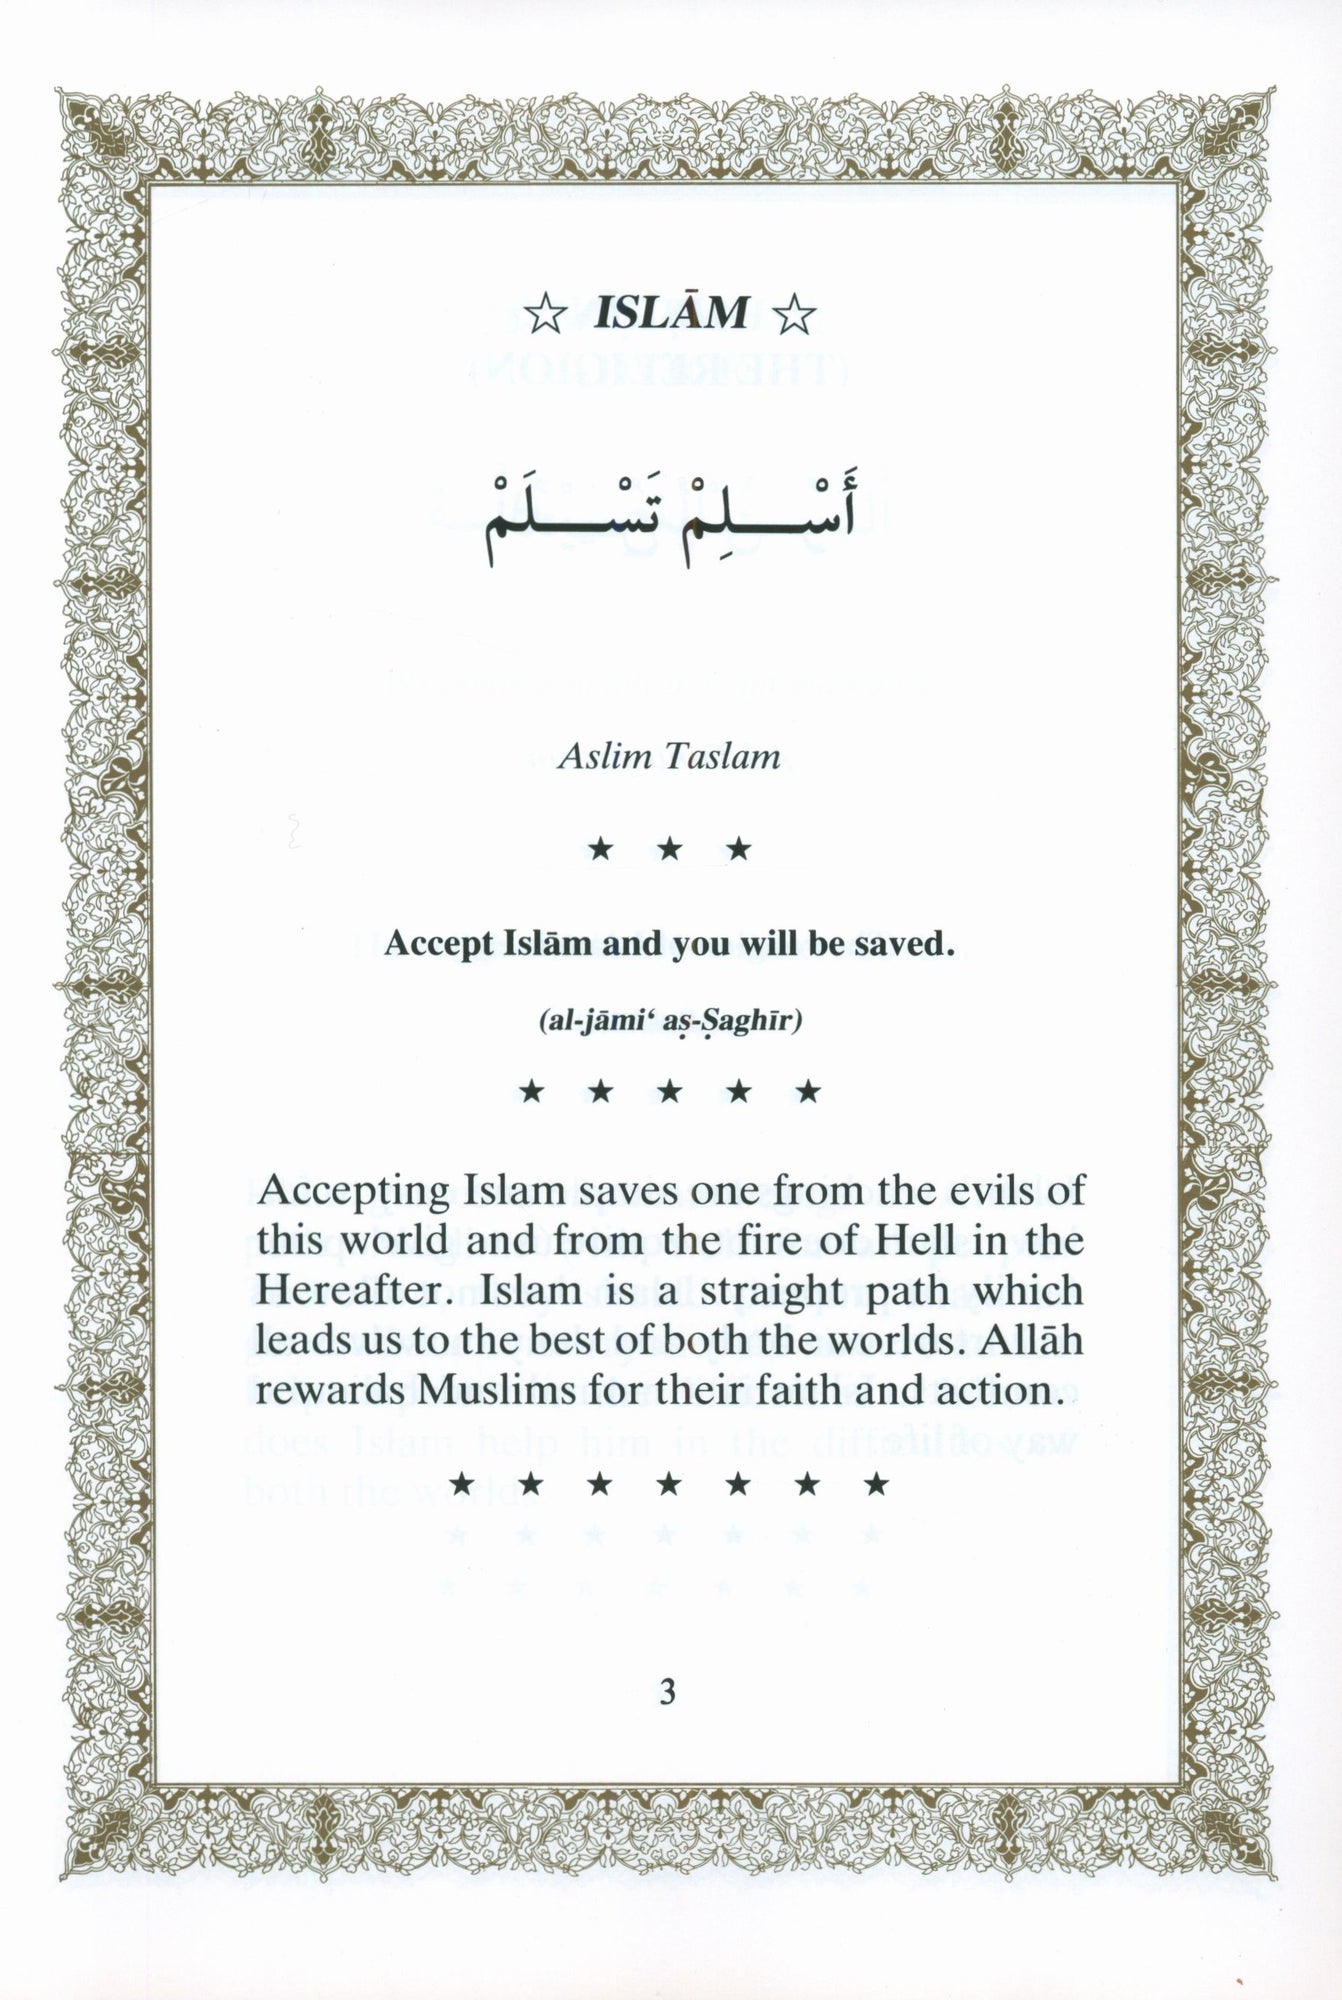 ☆ ISLĀM ☆
أَسْلِمْ تَسْلَمْ
Aslim Taslam
★ ★ ★
Accept Islām and you will be saved.
(al-jāmi‘ aṣ-Ṣaghīr)
★ ★ ★ ★ ★
Accepting Islam saves one from the evils of
this world and from the fire of Hell in the
Hereafter. Islam is a straight path which
leads us to the best of both the worlds. Allāh
rewards Muslims for their faith and action.
★ ★ ★ ★ ★ ★ ★
3